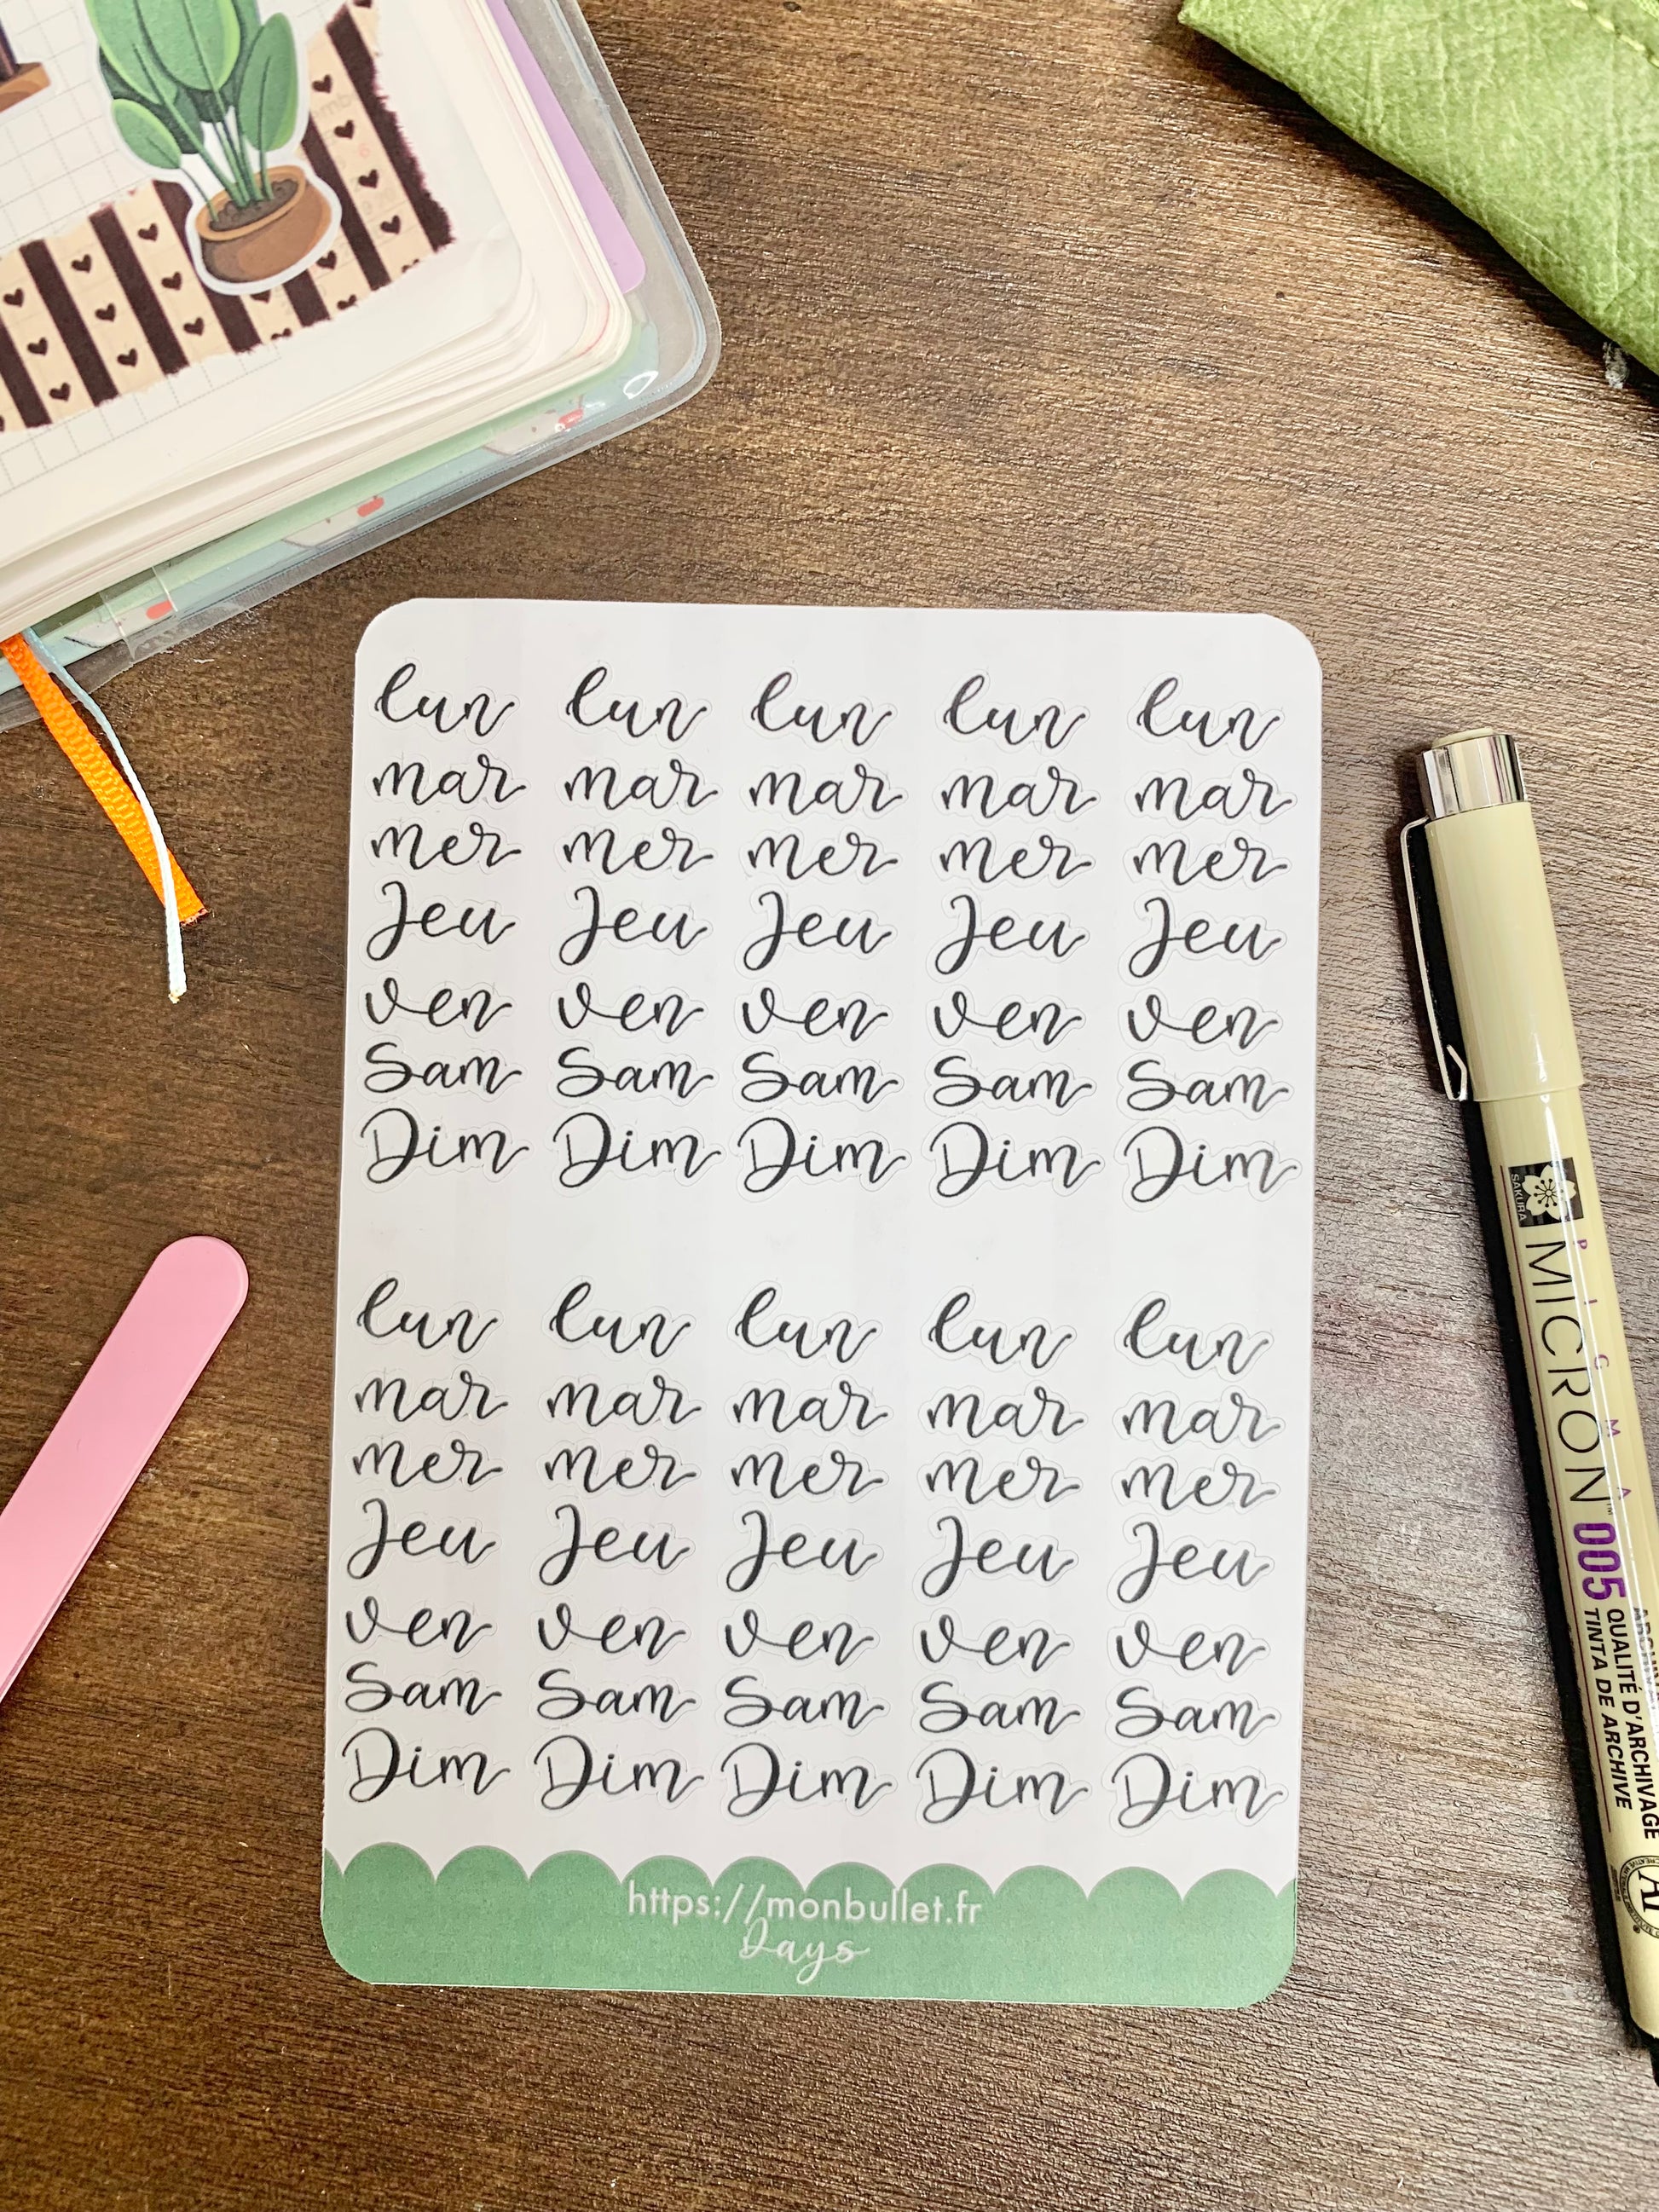 lun lun lun lun lun
mar mar mar mar mar
mer mer mer mer mer
Jeu Jeu Jeu Jeu Jeu
ven ven ven ven ven
Sam Sam Sam Sam Sam
Dim Dim Dim Dim Dim
lun lun lun lun lun
mar mar mar mar mar
mer mer mer mer mer
Jeu Jeu Jeu Jeu Jeu
ven ven ven ven ven
Sam Sam Sam Sam Sam
Dim Dim Dim Dim Dim
https://monbullet.fr
Days
SAKURA
PIGMA
MICRON™ 005
QUALITÉ D'ARCHIVAGE
TINTA DE ARCHIVE